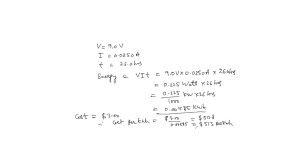 V = 9.0V
I = 0.0250A
t = 26.0 hrs
Energy = VIt = 9.0V x 0.0250A x 26hrs
= 0.225 Watt x 26hrs
= 0.225/1000 kW x 26 hrs
= 0.00585 KWh
Cost = $3.00
Cost per kWh = $3.00/0.00585
= $513